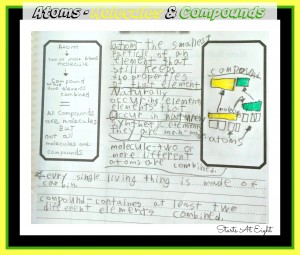 Atoms - Molecules & Compounds
Atom
two or more atoms
molecule
compound
two elements
combined
All compounds
are molecules
BUT
not all
molecules are
compounds
atom - the smallest
particle of an
element that
still keeps
its properties
of that element
Naturally
occuring elements
elements that
occur in nature
synthetic elements
they are man-made
molecule - two or
more different
atoms are combined
compound
atoms
Every single living thing is made of
carbon
compound - contains at least two
different elements combined.
Starts At Eight